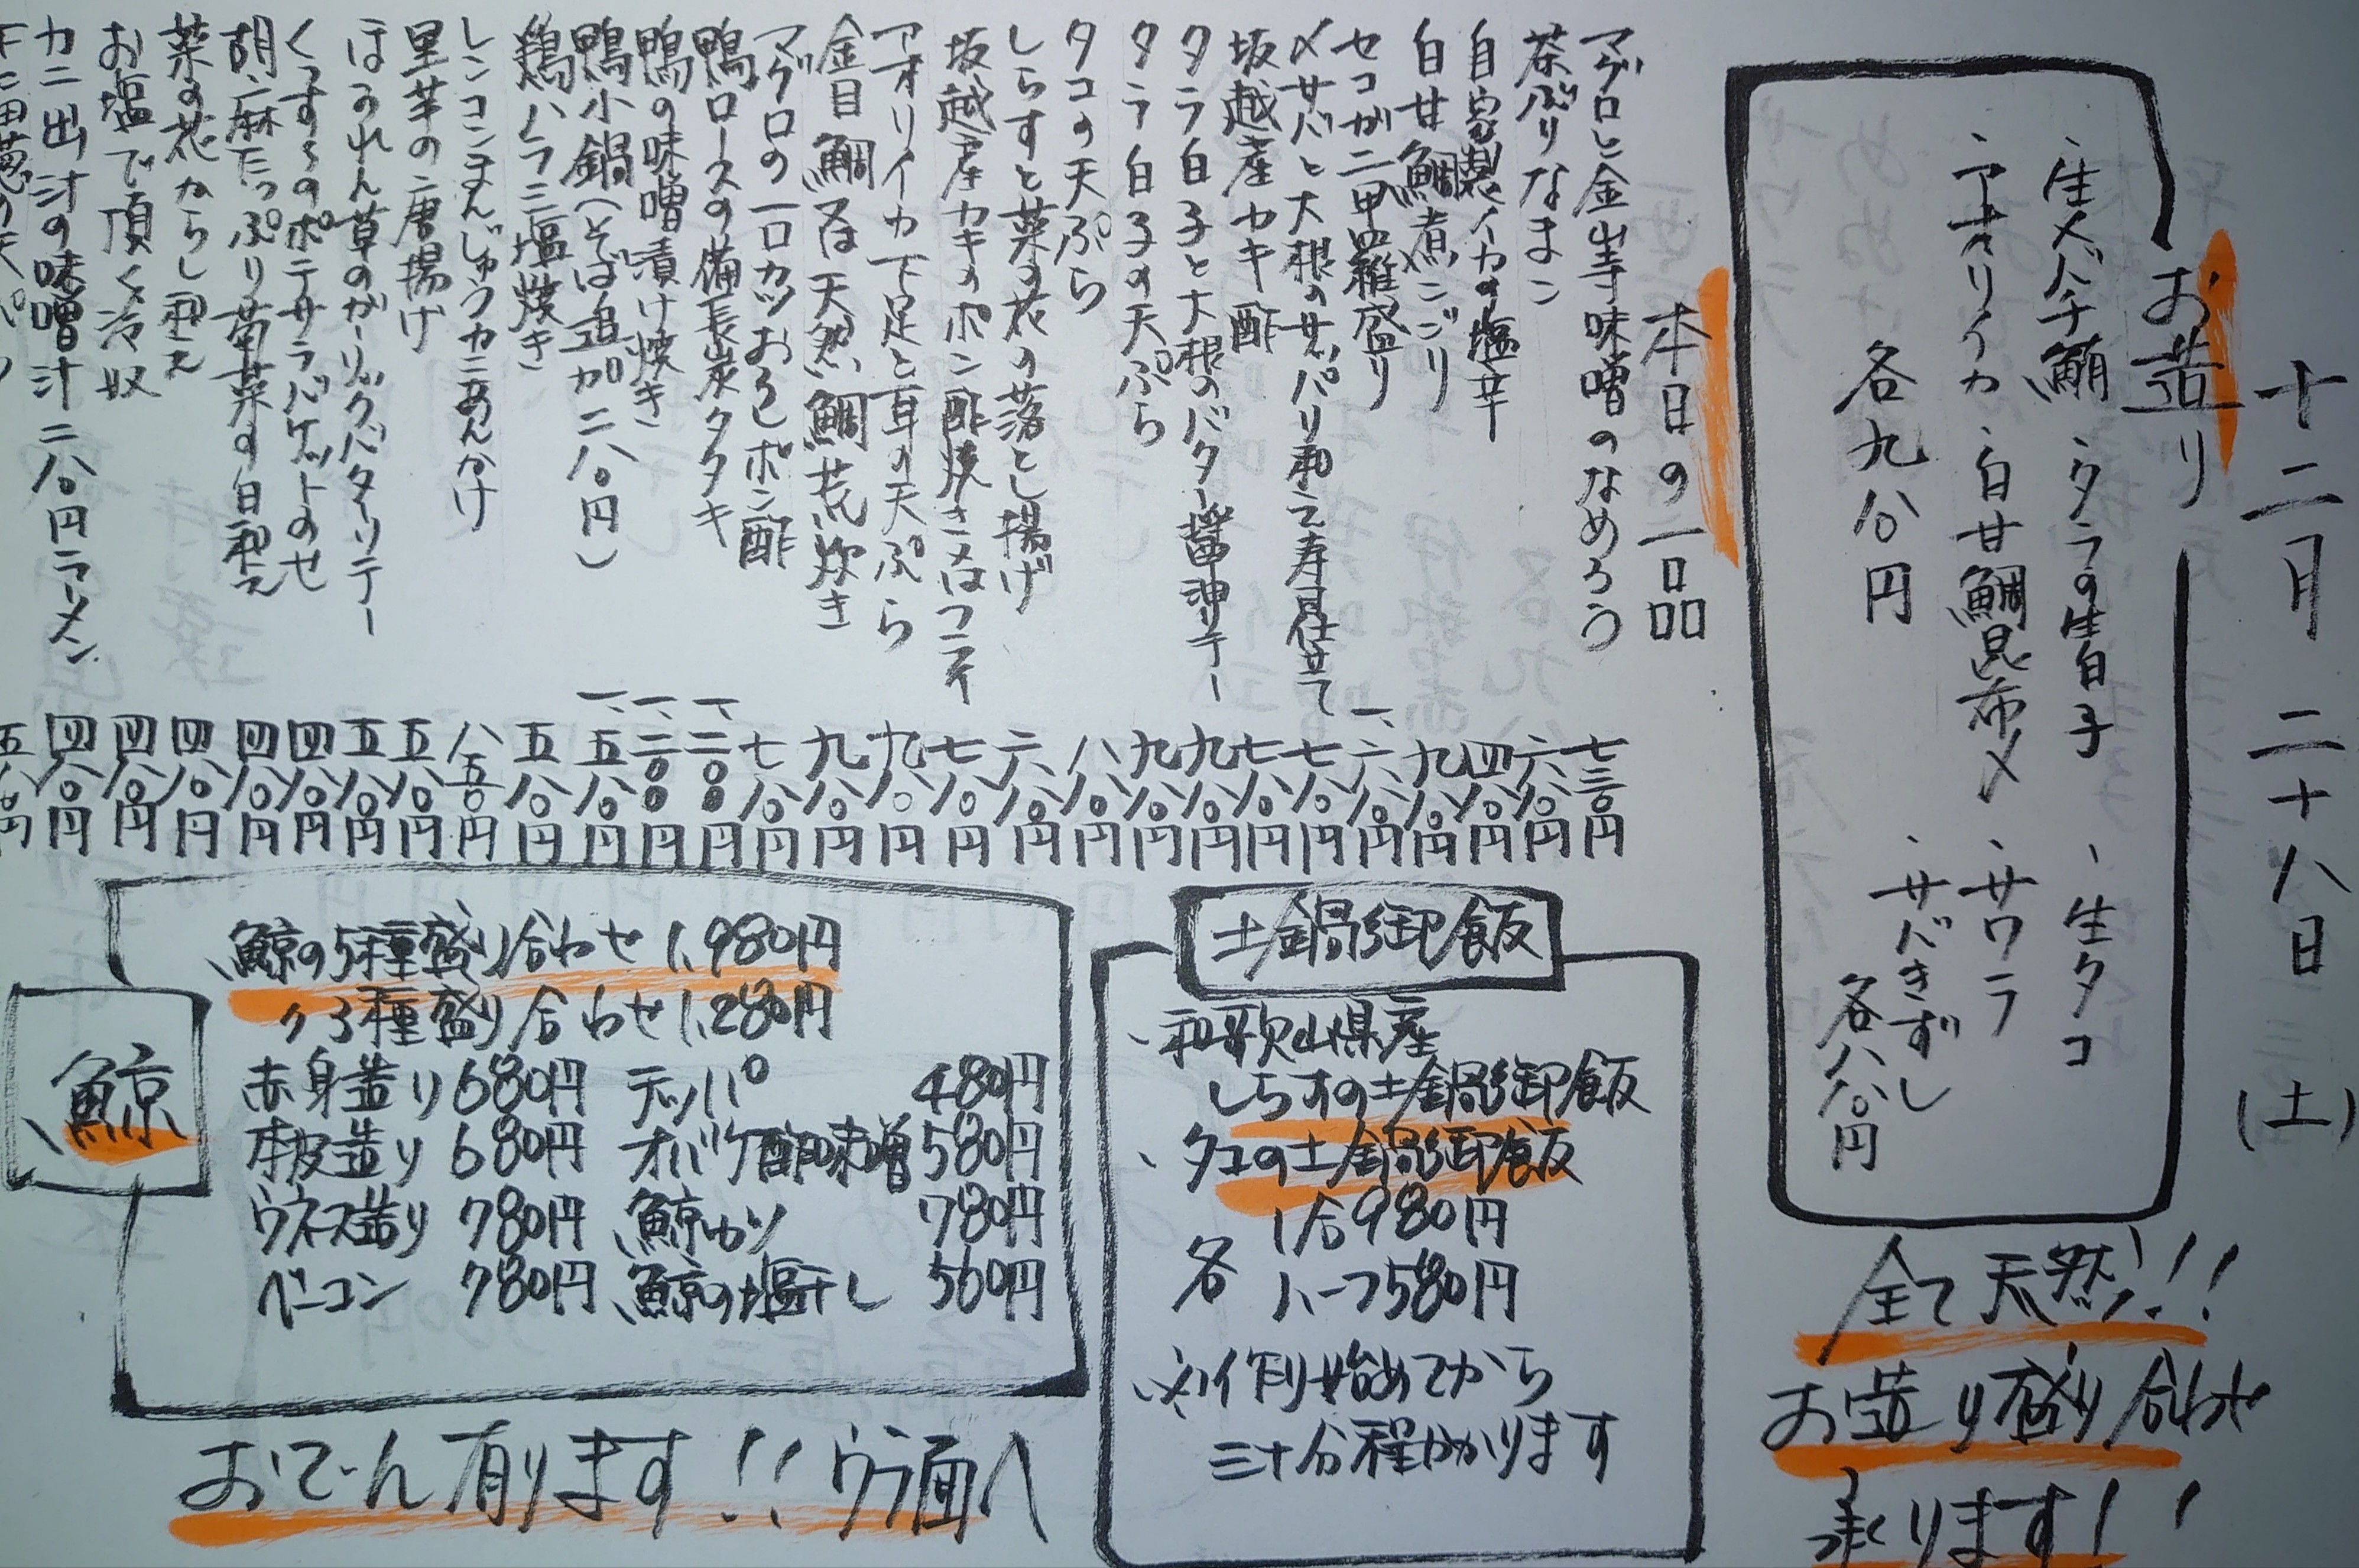 十二月 二十八日 (土)
お造り
・生メバチ鮪 ・タラの生白子 ・生タコ
・アオリイカ ・白甘鯛昆布〆 ・サワラ
・サバきずし
各九八〇円
各八八〇円
全て天然!!
お造り盛り合わせ
承ります!!
本日の一品
マグロと金山寺味噌のなめろう 七三〇円
茶ぶりなまこ 六八〇円
自家製イカの塩辛 四八〇円
白甘鯛煮こごり 九八〇円
セコガニ甲羅盛り 一、六八〇円
〆サバと大根のサッパリ和え寿司仕立て 七八〇円
坂越産カキ酢 七八〇円
タラ白子と大根のバター醤油ソテー 九八〇円
タラ白子の天ぷら 九八〇円
タコの天ぷら 八八〇円
しらすと菜の花の落とし揚げ 六八〇円
坂越産カキのポン酢焼き又はフライ 七八〇円
アオリイカ下足と耳の天ぷら 九八〇円
金目鯛又は天然鯛荒炊き 九八〇円
マグロの一口カツおろしポン酢 七八〇円
鴨ロースの備長炭タタキ 一、二〇〇円
鴨の味噌漬け焼き 一、二〇〇円
鴨小鍋(そば追加二八〇円) 一、五八〇円
鶏ハラミ塩焼き 五八〇円
レンコンまんじゅうカニあんかけ 八五〇円
里芋の唐揚げ 五八〇円
ほうれん草のガーリックバターソテー 五八〇円
くずし のポテサラバゲットのせ 四八〇円
胡麻たっぷり菊菜の白和え 四八〇円
菜の花からし和え 四八〇円
お塩で頂く冷奴 四八〇円
カニ出汁の味噌汁 二八〇円ラーメン 四八〇円
土鍋御飯
・和歌山県産
しらすの土鍋御飯
・タコの土鍋御飯
各 1合980円
ハーフ580円
※作り始めてから
三十分程かかります
鯨
鯨の5種盛り合わせ 1,980円
〃3種盛り合わせ 1,280円
赤身造り 680円 テッパ° 480円
本皮造り 680円 オバケ酢味噌 580円
ウネス造り 780円 鯨カツ 780円
ベーコン 780円 鯨の塩干し 560円
おでん有ります!!ウラ面へ